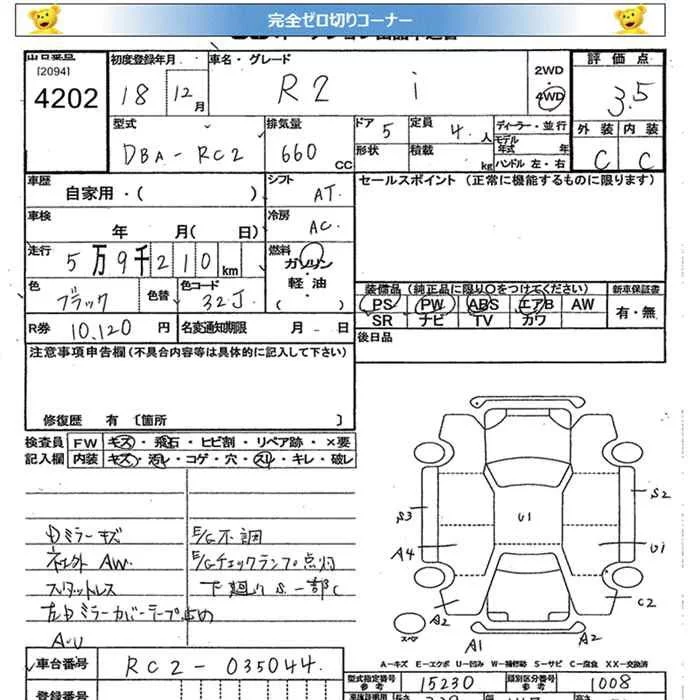 完全ゼロ切りコーナー
出品番号 [2094] 4202
初度登録年月 18 12月
車名・グレード R2 i
2WD 4WD
評価点 3.5
外装 内装
C C
型式 DBA-RC2
排気量 660 CC
ドア 5 定員 4.人
ディーラー・並行
形状 積載 kg
モデル年式 年
ハンドル 左・右
車歴 自家用・( )
シフト AT.
セールスポイント(正常に機能するものに限ります)
車検 年 月( 日)
冷房 AC.
走行 5万9千210km
燃料 ガソリン・軽油・( )
色 ブラック 色替
色コード 32J.
装備品(純正品に限り〇をつけてください) 新車保証書
PS PW ABS エアB AW 有・無
SR ナビ TV カワ
R券 10,120円
名変通知期限 月 日
後日品
注意事項申告欄(不具合内容等は具体的に記入して下さい)
修復歴 有 〔箇所 〕
検査員 FW キズ・飛石・ヒビ割・リペア跡・×要
記入欄 内装 キズ・汚レ・コゲ・穴・スレ・キレ・破レ
ミラーキズ E/G不調
社外AW. E/Gチェックランプ点灯
スタットレス 下廻りS.一部C
左右ミラーカバーテープ止め
A・U
S3 U1 S2
A4 U1
A2 C2
スペア A1 A2
A-キズ E-エクボ U-凹み W-補修跡 S-サビ C-腐食 XX-交換済
車台番号 RC2-035044.
型式指定番号 参考 15230 類別区分番号 参考 1008
登録番号